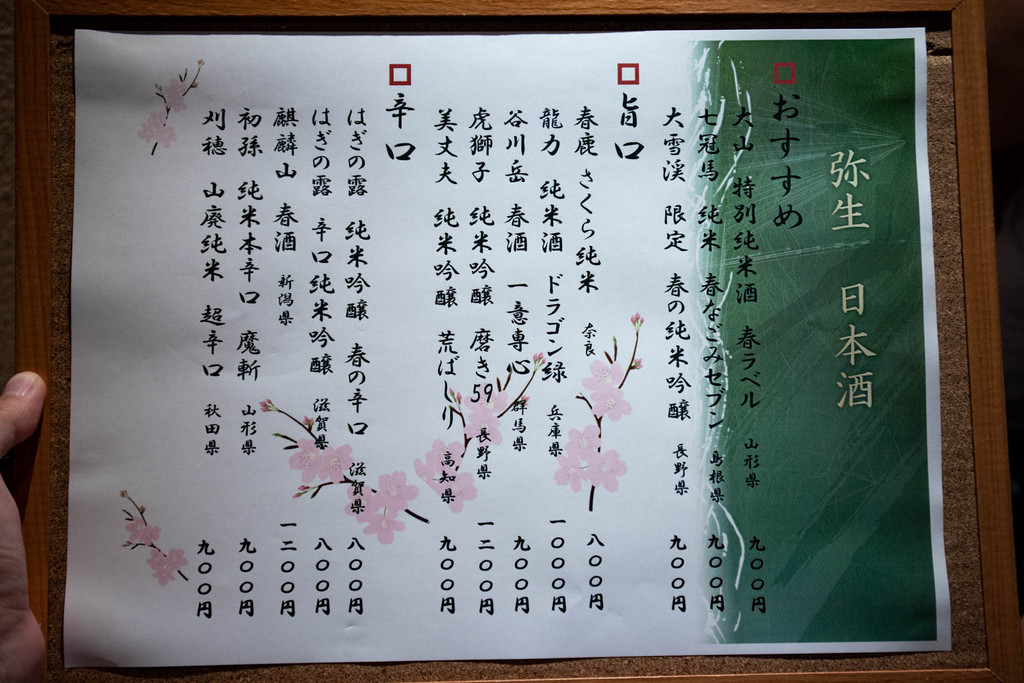 弥生 日本酒
おすすめ
大山 特別純米酒 春ラベル 山形県 九〇〇円
七冠馬 純米 春なごみセブン 島根県 九〇〇円
大雪渓 限定 春の純米吟醸 長野県 九〇〇円
旨口
春鹿 さくら純米 奈良 八〇〇円
龍力 純米酒 ドラゴン緑 兵庫県 一〇〇〇円
谷川岳 春酒 一意専心 群馬県 九〇〇円
虎獅子 純米吟醸 磨き59 長野県 一二〇〇円
美丈夫 純米吟醸 荒ばしり 高知県 九〇〇円
辛口
はぎの露 純米吟醸 春の辛口 滋賀県 八〇〇円
はぎの露 辛口純米吟醸 滋賀県 八〇〇円
麒麟山 春酒 新潟県 一二〇〇円
初孫 純米本辛口 魔斬 山形県 九〇〇円
刈穂 山廃純米 超辛口 秋田県 九〇〇円